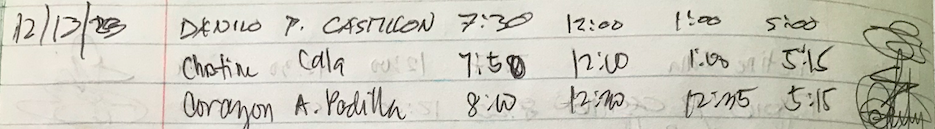 12/13/23 DENILO P. CASTILLON 7:30 12:00 1:00 5:00
Cala 7:50 12:00 1:00 5:15
Corazon A. Padilla 8:00 12:30 12:35 5:15